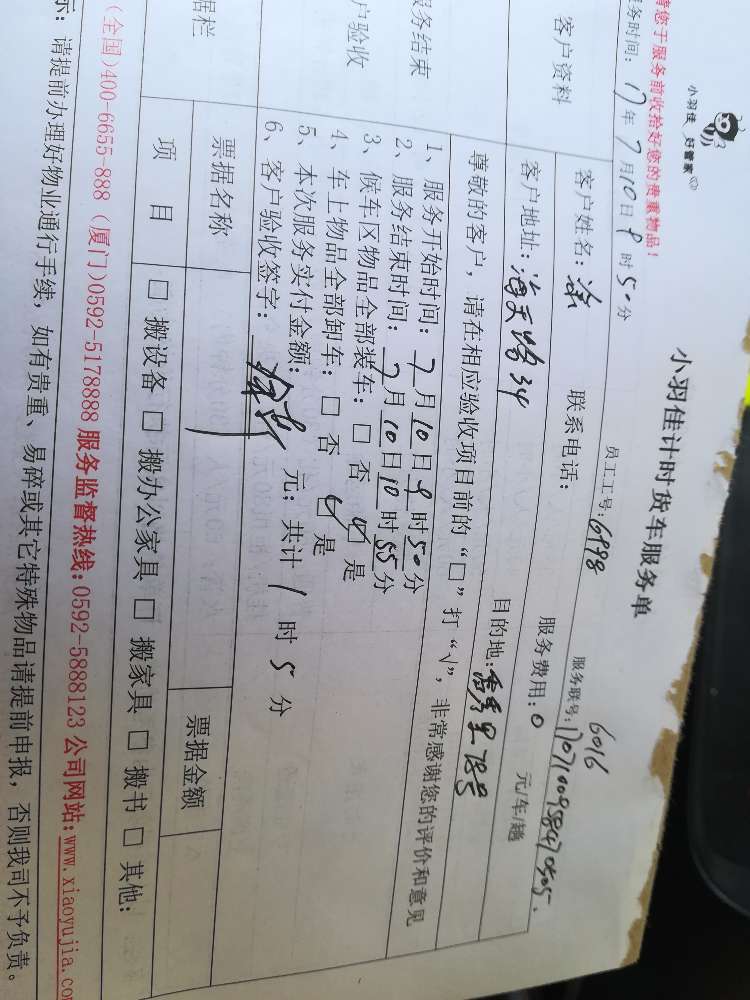 小羽佳 好管家
小羽佳计时货车服务单
6016
请您于服务前收拾好您的贵重物品!
员工工号: 6998
服务联号: 1707100958470505.
服务时间: 17年7月10日9时50分
客户资料
客户姓名: 涂
联系电话:
服务费用: 0 元/车/趟
客户地址: 海天路34
目的地:
尊敬的客户, 请在相应验收项目前的“□”打“√”, 非常感谢您的评价和意见
服务结束
客户验收
1、服务开始时间: 7月10日9时50分
2、服务结束时间: 7月10日10时55分
3、候车区物品全部装车: □ 否 ☑ 是
4、车上物品全部卸车: □ 否 ☑ 是
5、本次服务实付金额: 元; 共计 1 时 5 分
6、客户验收签字:
据栏
票据名称
票据金额
项 目
□ 搬设备 □ 搬办公家具 □ 搬家具 □ 搬书 □ 其他:
(全国)400-6655-888 (厦门)0592-5178888 服务监督热线:0592-5888123 公司网站:www.xiaoyujia.co
示: 请提前办理好物业通行手续, 如有贵重、易碎或其它特殊物品请提前申报, 否则我司不予负责。